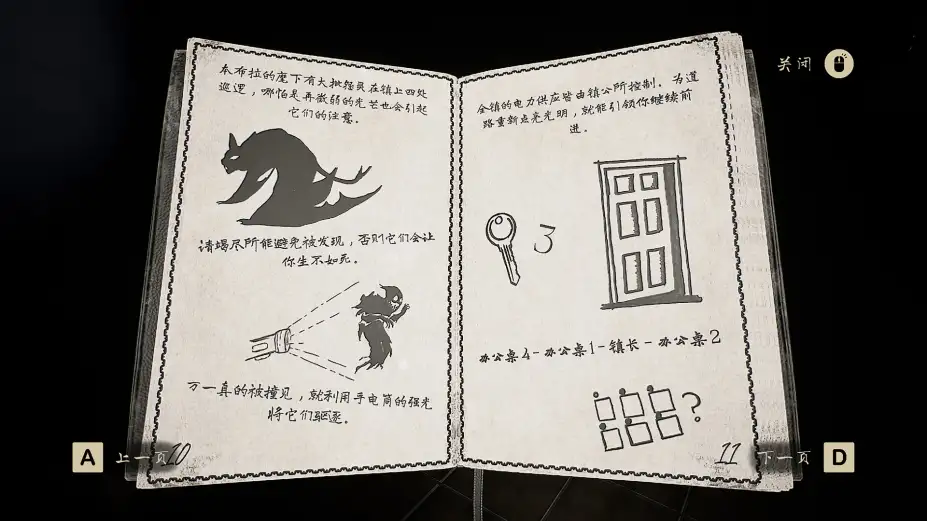 本布拉的麾下有大批怪灵在镇上四处
巡逻，哪怕是再微弱的光芒也会引起
它们的注意。
请竭尽所能避免被发现，否则它们会让
你生不如死。
万一真的被撞见，就利用手电筒的强光
将它们驱逐。
10
全镇的电力供应皆由镇公所控制。为道
路重新点亮光明，就能引领你继续前
进。
3
办公桌4-办公桌1-镇长-办公桌2
?
11
关闭
A 上一页
下一页 D